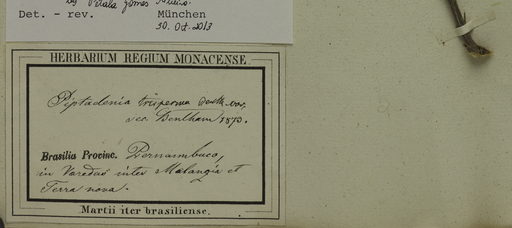 by Perala Gomes
Det. - rev. München
30. Oct. 2013
HERBARIUM REGIUM MONACENSE.
Piptadenia trisperma Benth. var.
sec. Bentham 1870.
Brasilia Provinc. Pernambuco,
in Varedas inter Malangia et
Terra nova.
Martii iter brasiliense.